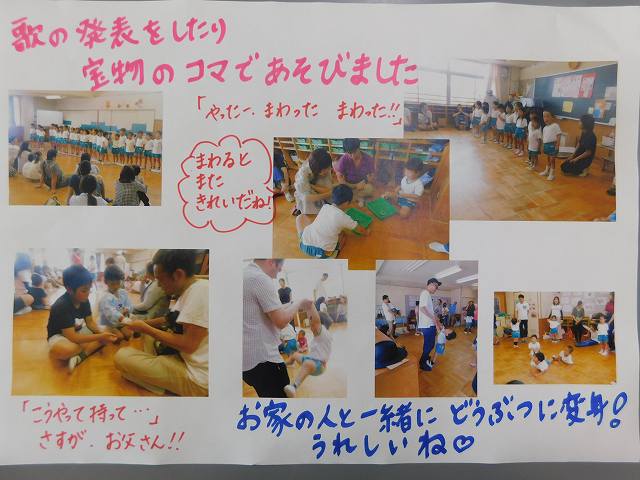 歌の発表をしたり
宝物のコマであそびました
「やったー、まわった まわった!!」
まわると
また
きれいだね!
「こうやって持って…」
さすが、お父さん!!
お家の人と一緒に どうぶつに変身!
うれしいね♡